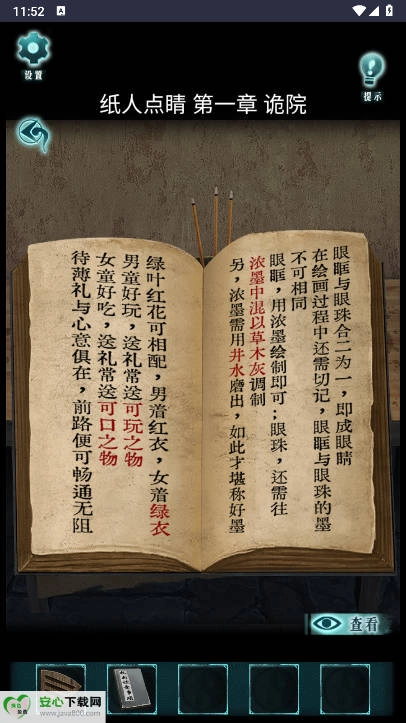 11:52
A
设置
提示
纸人点睛 第一章 诡院
眼眶与眼珠合二为一，即成眼睛
在绘画过程中还需切记，眼眶与眼珠的墨
不可相同
眼眶，用浓墨绘制即可；眼珠，还需往
浓墨中混以草木灰调制
另，浓墨需用井水磨出，如此才堪称好墨
绿叶红花可相配，男着红衣，女着绿衣
男童好玩，送礼常送可玩之物
女童好吃，送礼常送可口之物
待薄礼与心意俱在，前路便可畅通无阻
查看
安心下载网
www.java800.com